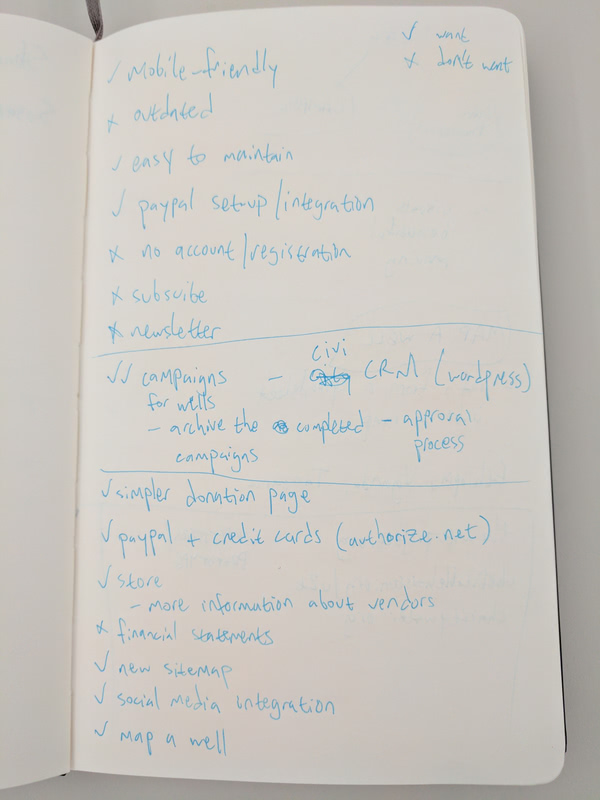 ✓ want
✗ don't want
✓ Mobile-friendly
✗ outdated
✓ easy to maintain
✓ paypal set-up/integration
✗ no account/registration
✗ subscribe
✗ newsletter
✓✓ campaigns - civi CRM (wordpress)
for wells
- archive the completed - approval
campaigns process
✓ simpler donation page
✓ paypal + credit cards (authorize.net)
✓ store
- more information about vendors
✗ financial statements
✓ new sitemap
✓ social media integration
✓ map a well